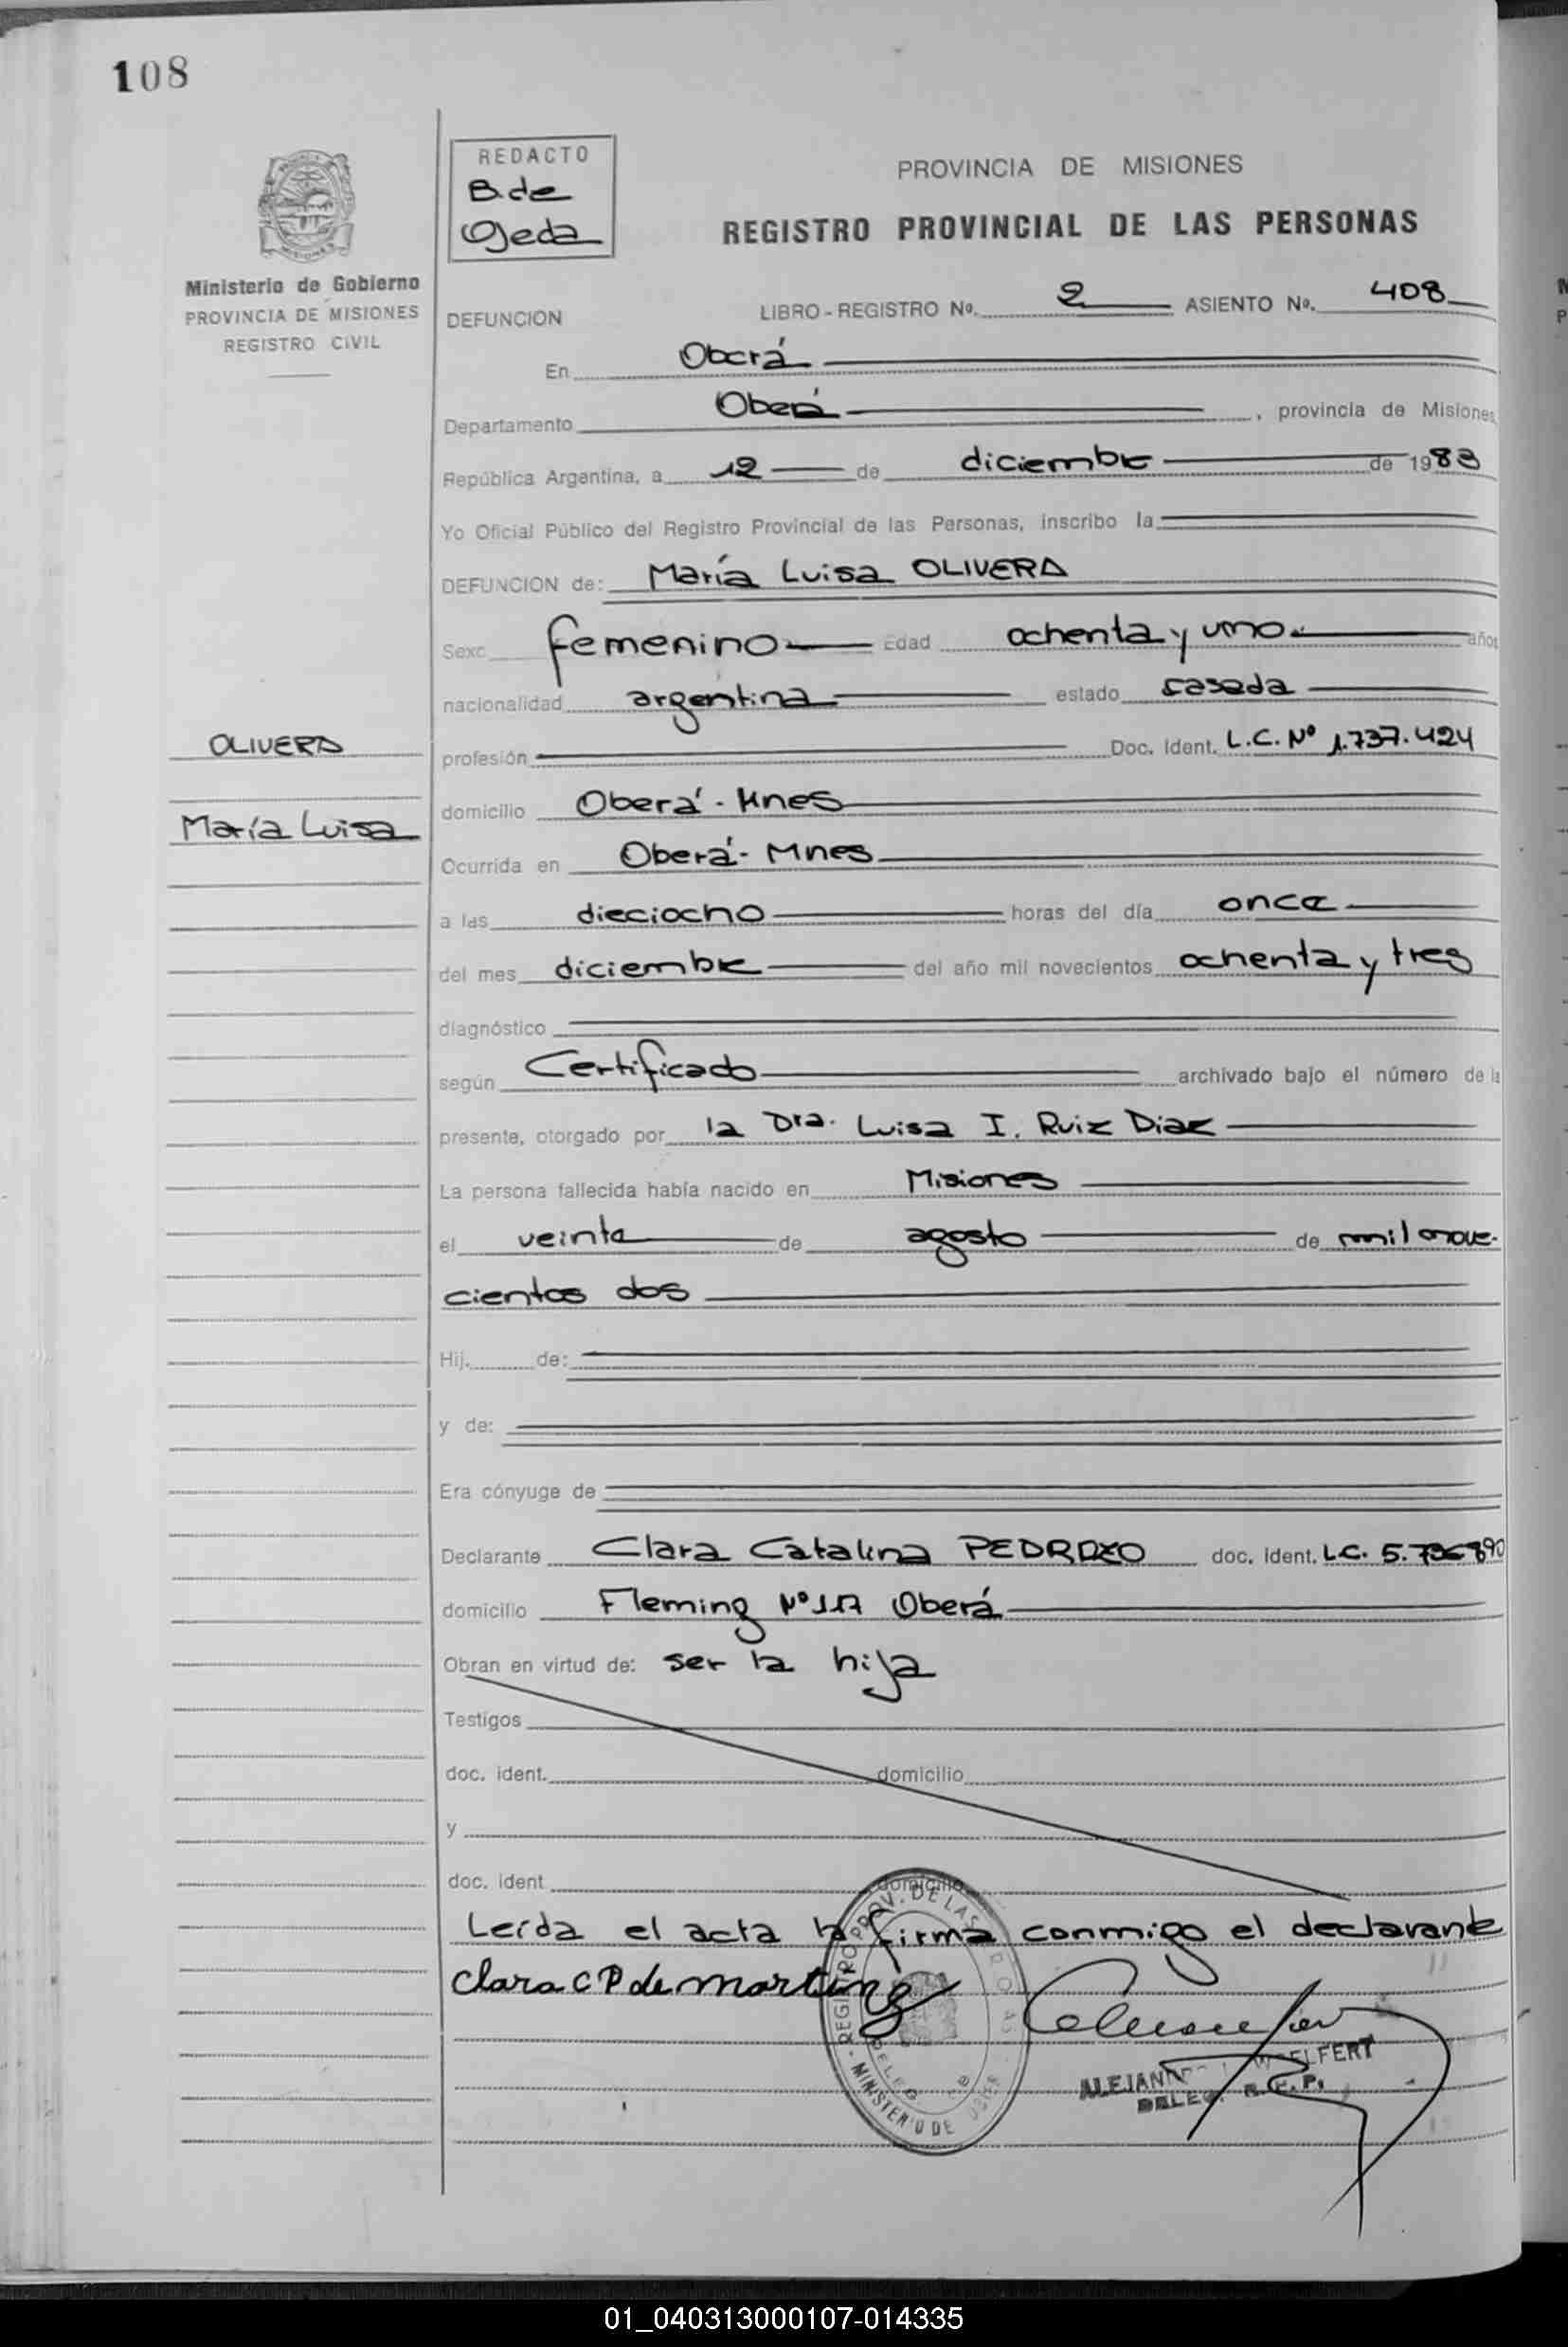 108
REDACTO
B. de
Ojeda
Ministerio de Gobierno
PROVINCIA DE MISIONES
REGISTRO CIVIL
PROVINCIA DE MISIONES
REGISTRO PROVINCIAL DE LAS PERSONAS
DEFUNCION LIBRO - REGISTRO No. 2 ASIENTO No. 408
En Oberá
Departamento Oberá, provincia de Misiones
República Argentina, a 12 de diciembre de 1983
Yo Oficial Público del Registro Provincial de las Personas, inscribo la
DEFUNCION de: María Luisa OLIVERA
Sexo femenino Edad ochenta y uno años
nacionalidad argentina estado casada
OLIVERA
María Luisa
profesión Doc. Ident. L.C. Nº 1.737.424
domicilio Oberá - Mnes
Ocurrida en Oberá - Mnes
a las dieciocho horas del día once
del mes diciembre del año mil novecientos ochenta y tres
diagnóstico
según Certificado archivado bajo el número de la
presente, otorgado por la Dra. Luisa I. Ruiz Diaz
La persona fallecida había nacido en Misiones
el veinte de agosto de mil nove-
cientos dos
Hij. de:
y de:
Era cónyuge de
Declarante Clara Catalina PEDROZO doc. ident. L.C.
domicilio Fleming Nº 117 Oberá
Obran en virtud de: ser la hija
Testigos
doc. ident. domicilio
y
doc. ident domicilio
Leída el acta la firma conmigo el declarante
Clara C P de Martinez
REGISTRO PROV. DE LAS
MINISTERIO DE
DELEG.
ALEJAN
DELEG. R. P.
01_040313000107-014335